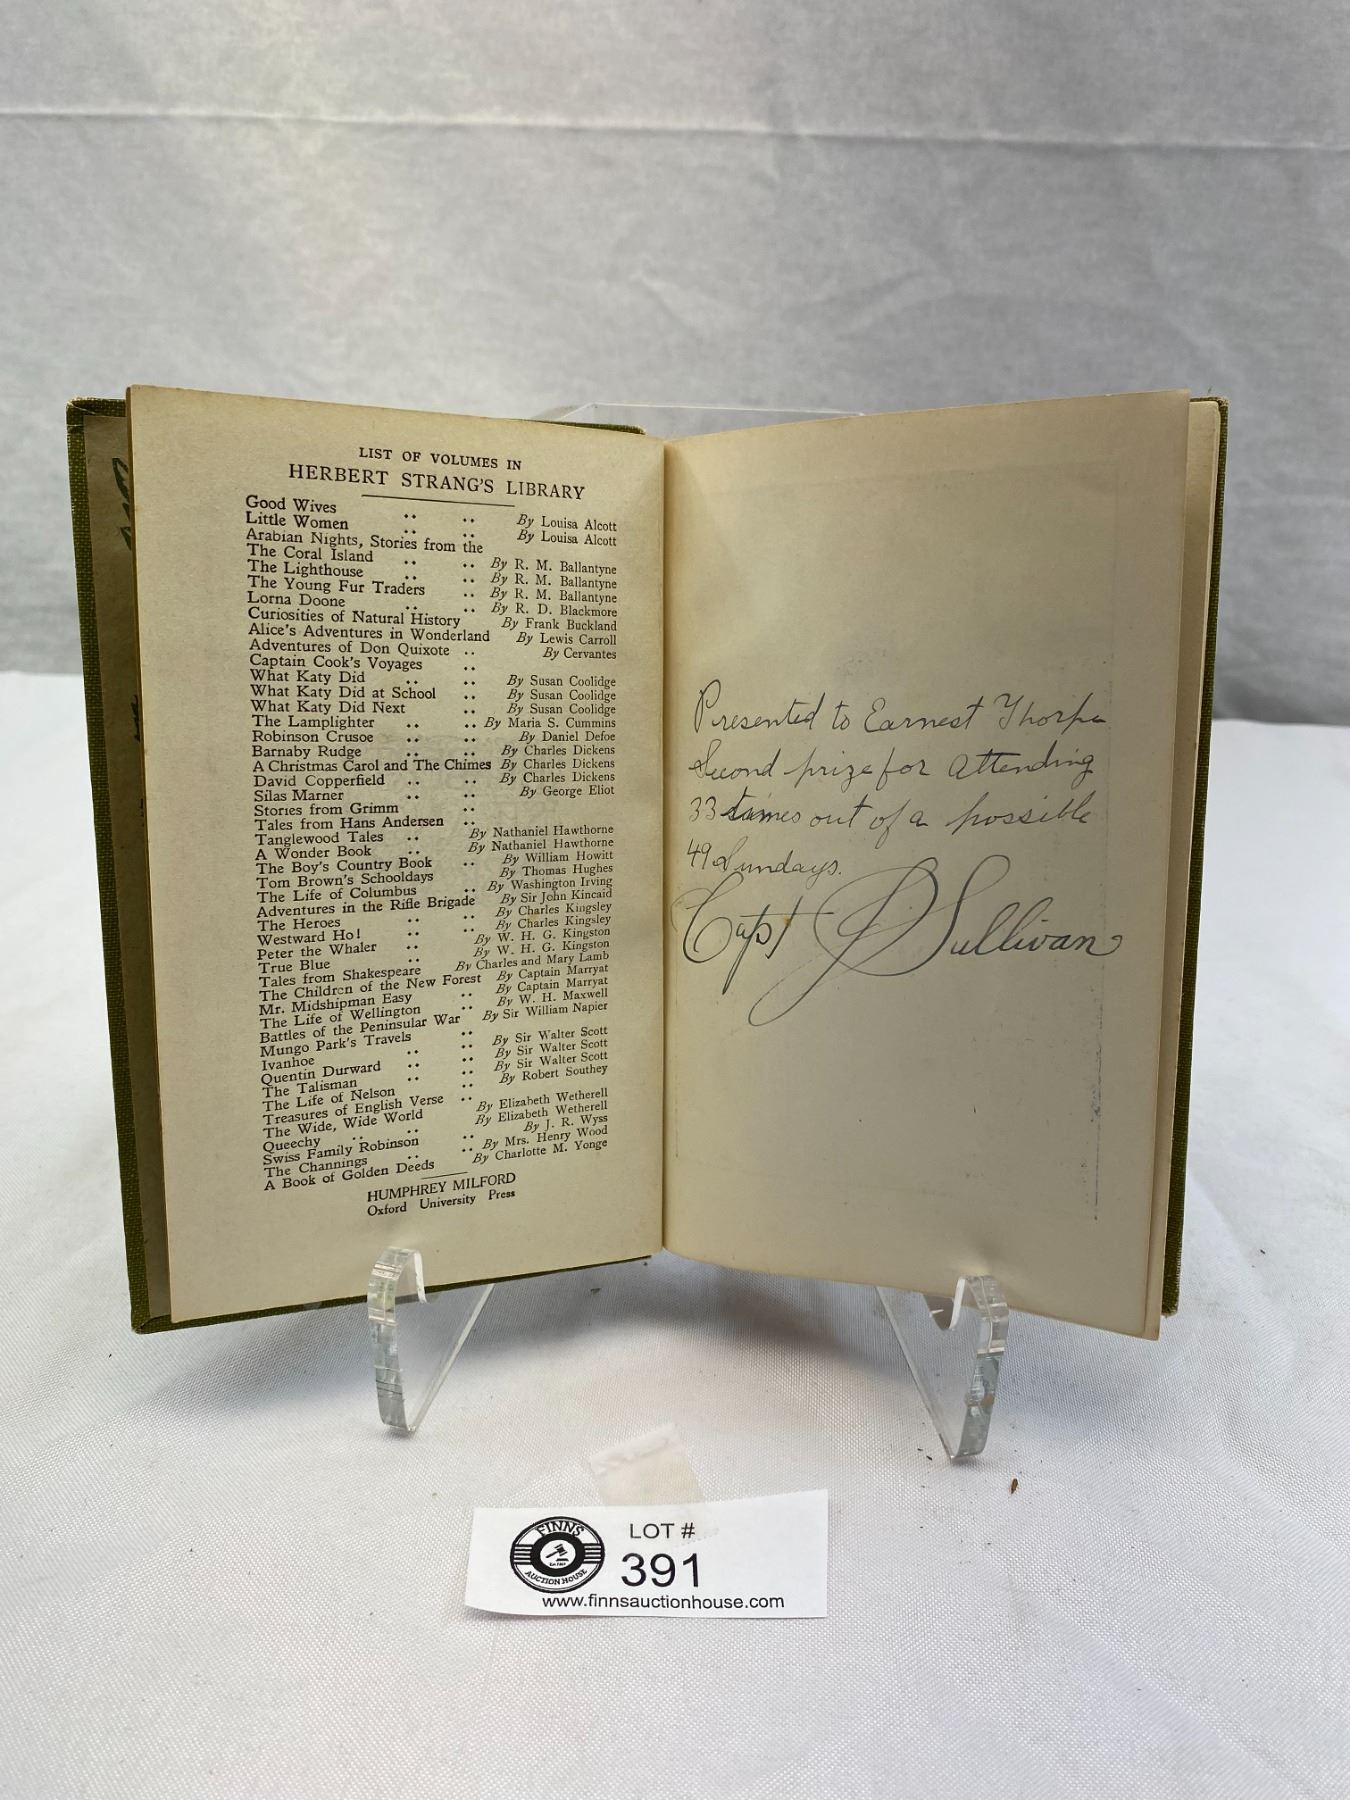 LIST OF VOLUMES IN
HERBERT STRANG'S LIBRARY
Good Wives .. .. By Louisa Alcott
Little Women .. .. By Louisa Alcott
Arabian Nights, Stories from the
The Coral Island .. .. By R. M. Ballantyne
The Lighthouse .. .. By R. M. Ballantyne
The Young Fur Traders .. By R. M. Ballantyne
Lorna Doone .. .. By R. D. Blackmore
Curiosities of Natural History By Frank Buckland
Alice's Adventures in Wonderland By Lewis Carroll
Adventures of Don Quixote .. By Cervantes
Captain Cook's Voyages ..
What Katy Did .. .. By Susan Coolidge
What Katy Did at School .. By Susan Coolidge
What Katy Did Next .. By Susan Coolidge
The Lamplighter .. .. By Maria S. Cummins
Robinson Crusoe .. .. By Daniel Defoe
Barnaby Rudge .. .. By Charles Dickens
A Christmas Carol and The Chimes By Charles Dickens
David Copperfield .. .. By Charles Dickens
Silas Marner .. .. By George Eliot
Stories from Grimm ..
Tales from Hans Andersen ..
Tanglewood Tales .. By Nathaniel Hawthorne
A Wonder Book .. By Nathaniel Hawthorne
The Boy's Country Book .. By William Howitt
Tom Brown's Schooldays By Thomas Hughes
The Life of Columbus .. By Washington Irving
Adventures in the Rifle Brigade By Sir John Kincaid
The Heroes .. .. By Charles Kingsley
Westward Ho! .. .. By Charles Kingsley
Peter the Whaler .. By W. H. G. Kingston
True Blue .. By W. H. G. Kingston
Tales from Shakespeare By Charles and Mary Lamb
The Children of the New Forest By Captain Marryat
Mr. Midshipman Easy .. By Captain Marryat
The Life of Wellington .. By W. H. Maxwell
Battles of the Peninsular War By Sir William Napier
Mungo Park's Travels ..
Ivanhoe .. .. By Sir Walter Scott
Quentin Durward .. .. By Sir Walter Scott
The Talisman .. .. By Sir Walter Scott
The Life of Nelson .. By Robert Southey
Treasures of English Verse ..
The Wide, Wide World By Elizabeth Wetherell
Queechy .. .. By Elizabeth Wetherell
Swiss Family Robinson .. By J. R. Wyss
The Channings .. .. By Mrs. Henry Wood
A Book of Golden Deeds By Charlotte M. Yonge
HUMPHREY MILFORD
Oxford University Press
Presented to Earnest Thorpe
Second prize for attending
33 times out of a possible
49 Sundays.
Capt J Sullivan
FINNS
AUCTION HOUSE
LOT #
391
www.finnsauctionhouse.com